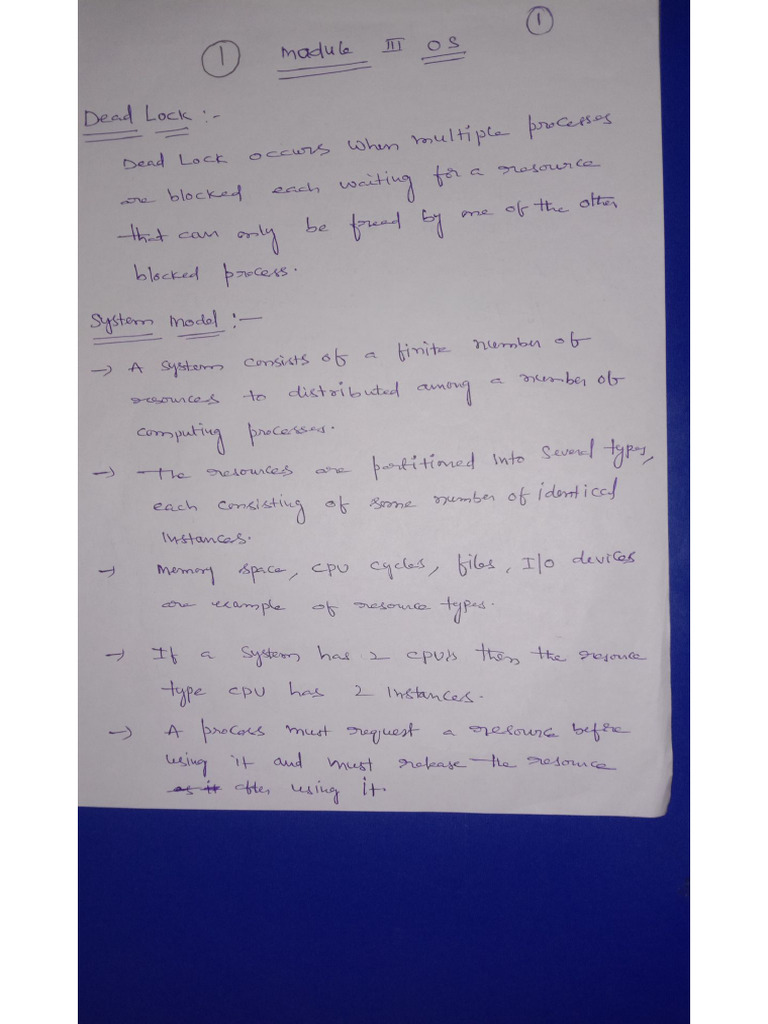 1
1 Module III OS
Dead Lock :-
Dead Lock occurs when multiple processes
are blocked each waiting for a resource
that can only be freed by one of the other
blocked process.
System Model :-
→ A system consists of a finite number of
resources to distributed among a number of
computing processes.
→ The resources are partitioned into several types,
each consisting of some number of identical
instances.
→ Memory space, CPU cycles, files, I/O devices
are example of resource types.
→ If a system has 2 CPU's then the resouce
type CPU has 2 instances.
→ A process must request a resource before
using it and must release the resource
as it after using it.